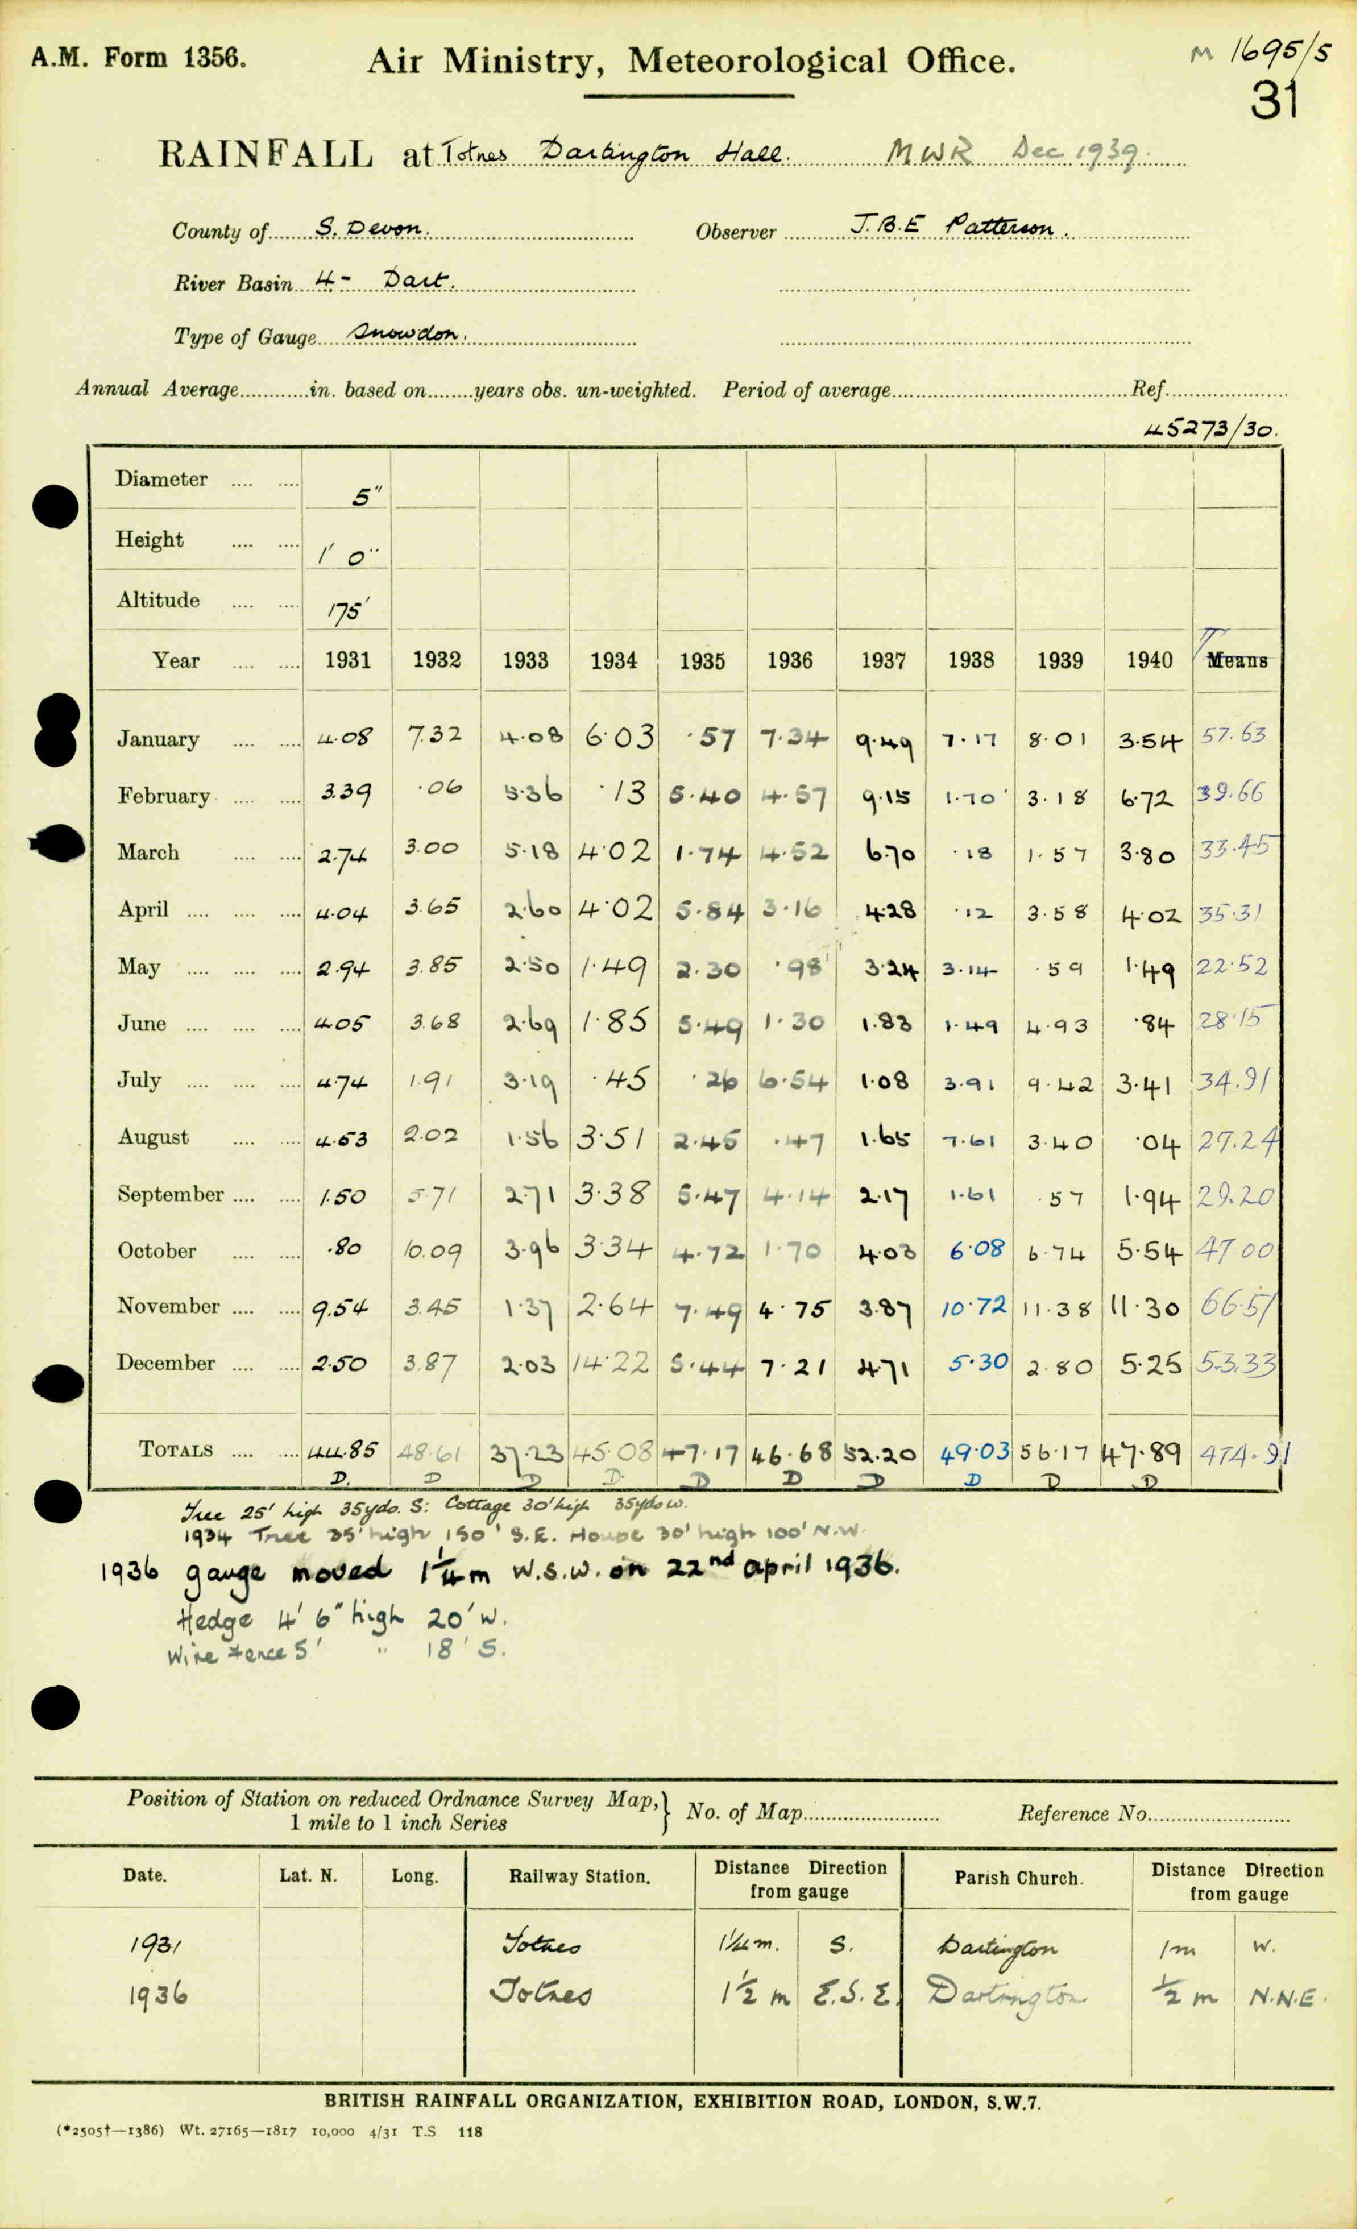 A.M. Form 1356.
Air Ministry, Meteorological Office.
M 1695/5
31
RAINFALL at Totnes Dartington Hall. MWR Dec 1939.
County of S. Devon. Observer J.B.E Patterson.
River Basin 4- Dart.
Type of Gauge Snowdon.
Annual Average in. based on years obs. un-weighted. Period of average Ref.
45273/30.
Diameter 5"
Height 1' 0"
Altitude 175'
Year 1931 1932 1933 1934 1935 1936 1937 1938 1939 1940 Means
January 4.08 7.32 4.08 6.03 .57 7.34 9.49 7.17 8.01 3.54 57.63
February 3.39 .06 5.36 .13 5.40 4.57 9.15 1.70 3.18 6.72 39.66
March 2.74 3.00 5.18 4.02 1.74 4.52 6.70 .18 1.57 3.80 33.45
April 4.04 3.65 2.60 4.02 5.84 3.16 4.28 .12 3.58 4.02 35.31
May 2.94 3.85 2.50 1.49 2.30 .98 3.24 3.14 .59 1.49 22.52
June 4.05 3.68 2.69 1.85 5.49 1.30 1.83 1.49 4.93 .84 28.15
July 4.74 1.91 3.19 .45 .26 6.54 1.08 3.91 9.42 3.41 34.91
August 4.53 2.02 1.56 3.51 2.45 .47 1.65 7.61 3.40 .04 27.24
September 1.50 5.71 2.71 3.38 5.47 4.14 2.17 1.61 .57 1.94 29.20
October .80 10.09 3.96 3.34 4.72 1.70 4.03 6.08 6.74 5.54 47.00
November 9.54 3.45 1.37 2.64 7.49 4.75 3.87 10.72 11.38 11.30 66.51
December 2.50 3.87 2.03 14.22 5.44 7.21 4.71 5.30 2.80 5.25 53.33
TOTALS 44.85 48.61 37.23 45.08 47.17 46.68 52.20 49.03 56.17 47.89 474.91
D. D D D. D D D D D D
Tree 25' high 35yds. S: Cottage 30' high 35yds w.
1934 Tree 35' high 150' S.E. House 30' high 100' N.W.
1936 gauge moved 1¼m W.S.W. on 22nd april 1936.
Hedge 4' 6" high 20' W.
Wire Fence 5' " 18' S.
Position of Station on reduced Ordnance Survey Map, } No. of Map Reference No.
1 mile to 1 inch Series
Date. Lat. N. Long. Railway Station. Distance Direction from gauge Parish Church. Distance Direction from gauge
1931 Totnes 1¼m. S. Dartington 1m W.
1936 Totnes 1½ m E.S.E. Dartington ½ m N.N.E.
BRITISH RAINFALL ORGANIZATION, EXHIBITION ROAD, LONDON, S.W.7.
(*2505†—1386) Wt. 27165—1817 10,000 4/31 T.S 118